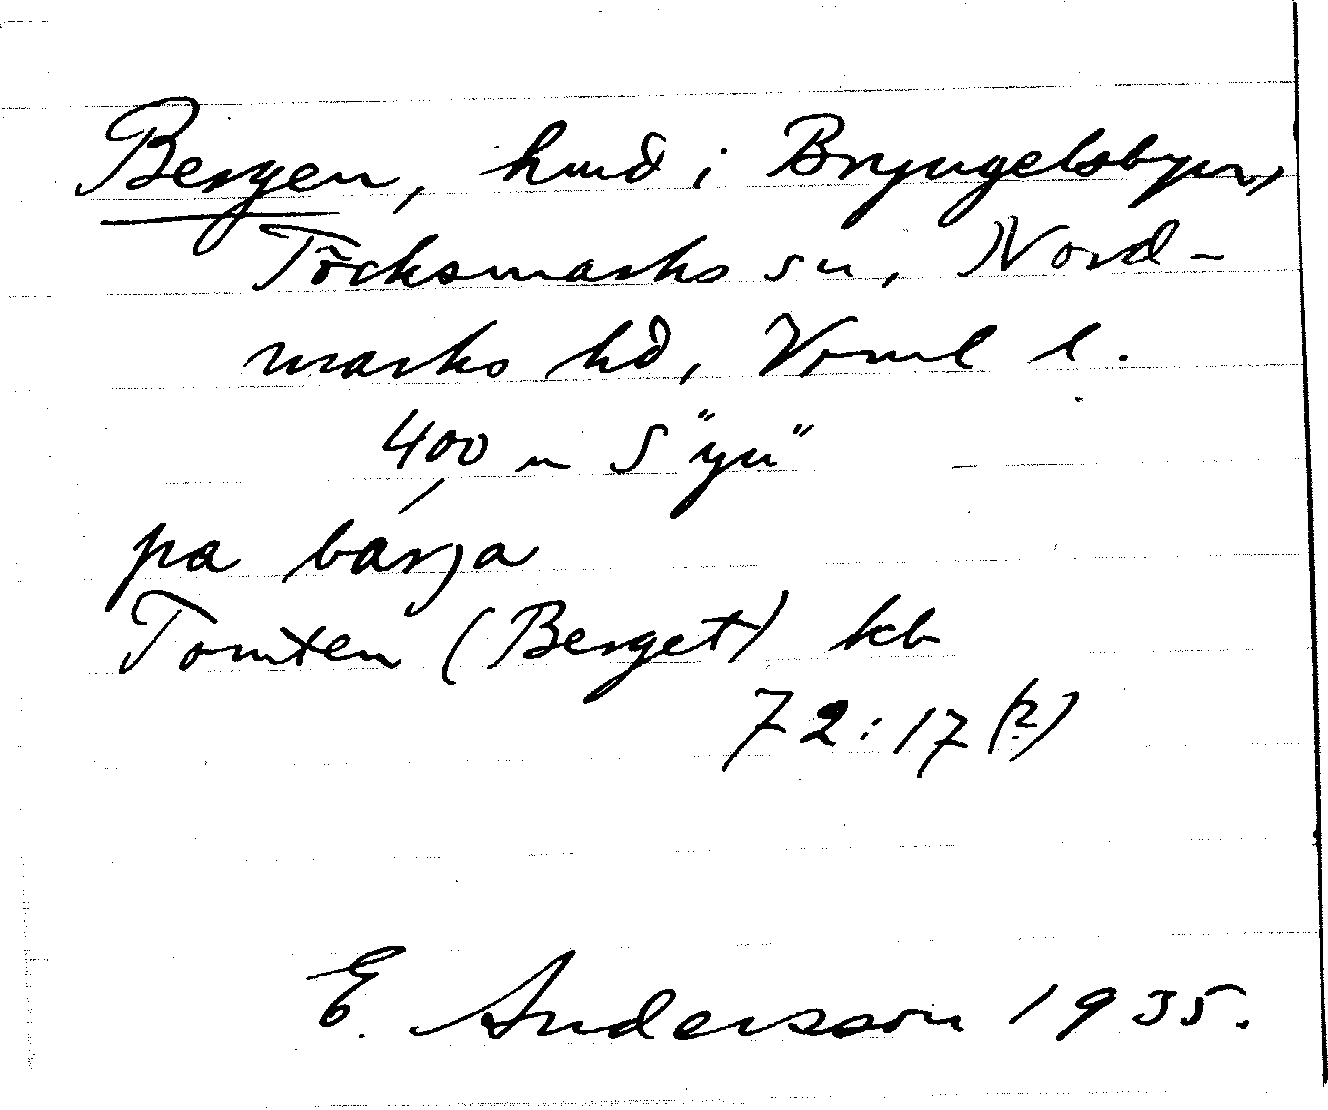 Bergen, hmd i Bryngelsbyn,
Töcksmarks sn, Nord-
marks hd, Vrml l.
400 m S "yn"
pa bárja
Tomten (Berget) kb
72:17 (?)
E. Andersson 1935.